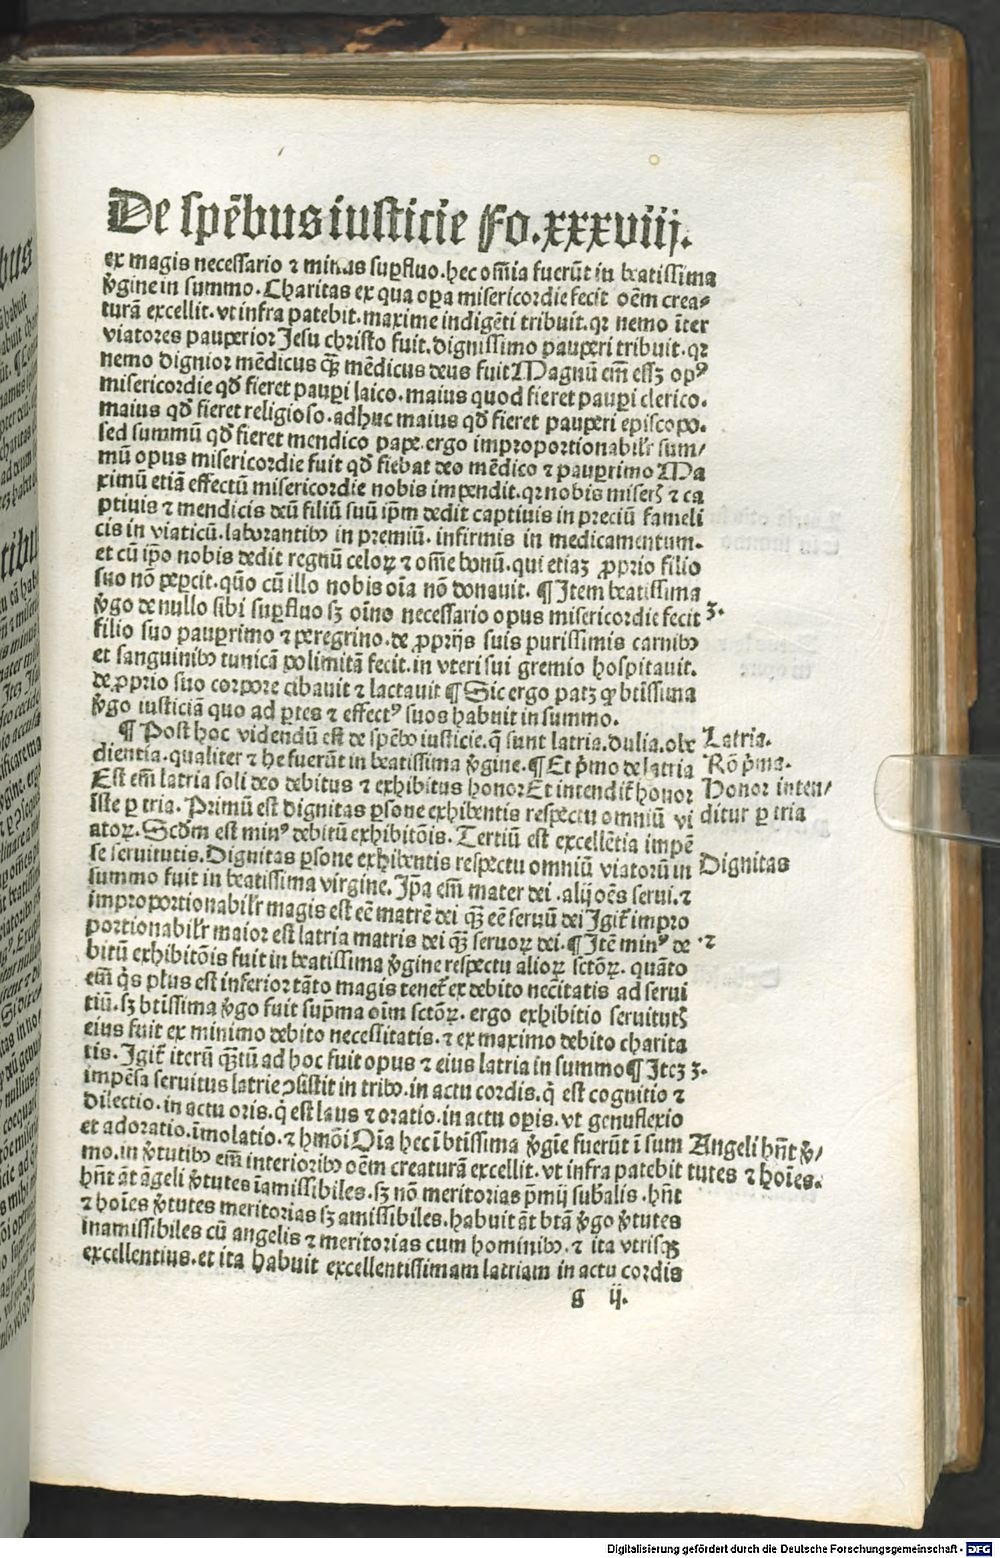 De spēbus iusticie Fo.xxxviij.
ex magis necessario ⁊ minus suꝑfluo. hec om̄ia fuerūt in beatissima
v̄gine in summo. Charitas ex qua oꝑa misericordie fecit oēm crea⸗
turā excellit. vt infra patebit. maxime indigēti tribuit. qꝛ nemo īter
viatores pauperior Jesu christo fuit. dignissimo pauperi tribuit. qꝛ
nemo dignior mēdicus qȝ̄ mēdicus deus fuit Magnū em̄ essȝ opꝰ
misericordie qd̄ fieret pauꝑi laico. maius quod fieret pauꝑi clerico.
maius qd̄ fieret religioso. adhuc maius qd̄ fieret pauperi episcopo.
sed summū qd̄ fieret mendico pape. ergo improportionabilr̄ sum/
mū opus misericordie fuit qd̄ fiebat deo mēdico ⁊ pauꝑrimo Ma
ximū etiā effectū misericordie nobis impendit. qꝛ nobis miserꝭ ⁊ ca
ptiuis ⁊ mendicis deū filiū suū ip̄m dedit captiuis in preciū fameli
cis in viaticū. laborantibꝰ in premiū. infirmis in medicamentum.
et cū ip̄o nobis dedit regnū celoꝝ ⁊ om̄e bonū. qui etiaȝ ꝓprio filio
suo nō peꝑcit. quō cū illo nobis oīa nō donauit. ¶ Item beatissima
v̄go de nullo sibi suꝑfluo sȝ oīno necessario opus misericordie fecit 3.
filio suo pauꝑrimo ⁊ peregrino. de ꝓprijs suis purissimis carnibꝰ
et sanguinibꝰ tunicā polimitā fecit. in vteri sui gremio hospitauit.
de ꝓprio suo corpore cibauit ⁊ lactauit ¶ Sic ergo patȝ ꝙ btīssima
v̄go iusticiā quo ad ꝑtes ⁊ effectꝰ suos habuit in summo.
¶ Post hoc videndū est de spēbꝰ iusticie. q̄ sunt latria. dulia. obe Latria.
dientia. qualiter ⁊ he fuerūt in beatissima v̄gine. ¶ Et p̄mo de latria Rō p̄ma.
Est em̄ latria soli deo debitus ⁊ exhibitus honor Et intendit᷑ honor Honor inten/
iste ꝑ tria. Primū est dignitas ꝑsone exhibentis respectu omniū vi ditur ꝑ tria
atoꝝ. Scd̄m est minꝰ debitū exhibitōis. Tertiū est excellētia impē
se seruitutis. Dignitas ꝑsone exhibentis respectu omniū viatorū in Dignitas
summo fuit in beatissima virgine. Jp̄a em̄ mater dei. alij oēs serui. ⁊
improportionabilr̄ magis est eē matrē dei qȝ̄ eē seruū dei Jgit᷑ impro
portionabilr̄ maior est latria matris dei qȝ̄ seruoꝝ dei. ¶ Jtē minꝰ de ·2
bitū exhibitōis fuit in beatissima v̄gine respectu alioꝝ sctōꝝ. quāto
em̄ q̇s plus est inferior tāto magis tenet᷑ ex debito nec̄itatis ad serui
tiū. sȝ btīssima v̄go fuit sup̄ma oīm sctōꝝ. ergo exhibitio seruitutꝭ
eius fuit ex minimo debito necessitatis. ⁊ ex maximo debito charita
tis. Jgit᷑ iterū qȝ̄tū ad hoc fuit opus ⁊ eius latria in summo ¶ Jteȝ 3.
impēsa seruitus latrie ꝯsistit in tribꝰ. in actu cordis. q̇ est cognitio ⁊
dilectio. in actu oris. q̇ est laus ⁊ oratio. in actu oꝑis. vt genuflexio
et adoratio. īmolatio. ⁊ hmōi Oīa hec ī btīssima v̄gīe fuerūt ī sum Angeli hn̄t v̄/
mo. in v̄tutibꝰ em̄ interioribꝰ oēm creaturā excellit. vt infra patebit tutes ⁊ hoīes.
hn̄t āt āgeli v̄tutes īamissibiles. sȝ nō meritorias p̄mij sub̄alis. hn̄t
⁊ hoīes v̄tutes meritorias sȝ amissibiles. habuit āt btā v̄go v̄tutes
inamissibiles cū angelis ⁊ meritorias cum hominibꝰ. ⁊ ita vtrisqȝ
excellentius. et ita habuit excellentissimam latriam in actu cordis
g ij.
Digitalisierung gefördert durch die Deutsche Forschungsgemeinschaft - DFG